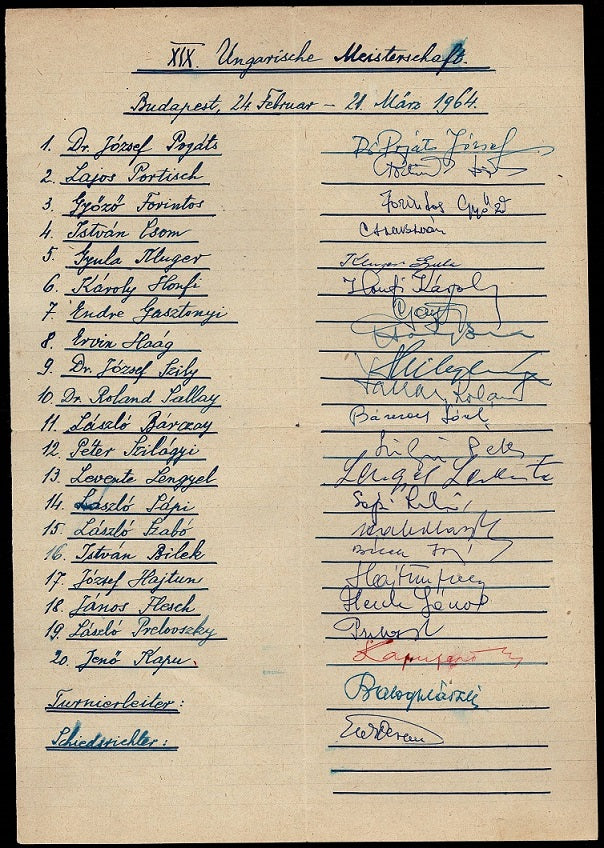 XIX. Ungarische Meisterschaft.
Budapest, 24. Februar – 21. März 1964.
1. Dr. József Pogáts Dr Pogáts József
2. Lajos Portisch
3. Győző Forintos Forintos Győző
4. István Csom Csom István
5. Gyula Kluger Kluger Gyula
6. Károly Honfi Honfi Károly
7. Endre Gasztonyi
8. Ervin Haág
9. Dr. József Szily
10. Dr. Roland Sallay Sallay Roland
11. László Bárczay
12. Péter Szilágyi
13. Levente Lengyel Lengyel Levente
14. László Sápi
15. László Szabó
16. István Bilek
17. József Hajtun Hajtun József
18. János Flesch Flesch János
19. László Prelovszky
20. Jenő Kapu. Kapu Jenő
Turnierleiter: Balogh László
Schiedsrichter: